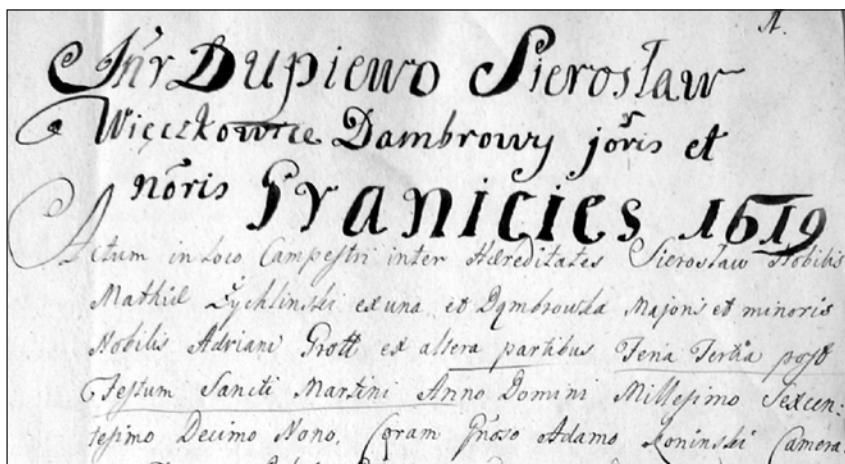 1.
Intr Dupiewo Sierosław
Więczkowice Dambrowy joris et
noris Granicies 1619
Actum in Loco Campestri inter Hæreditates Sierosław Nobilis
Mathiæ Żychlinski ex una et Dąmbrowka Majoris et minoris
Nobilis Adriani Grott ex altera partibus Feria Tertia post
Festum Sancti Martini Anno Domini Millesimo Sexcen:
tesimo Decimo Nono, Coram Gñoso Adamo Koninski Camera: